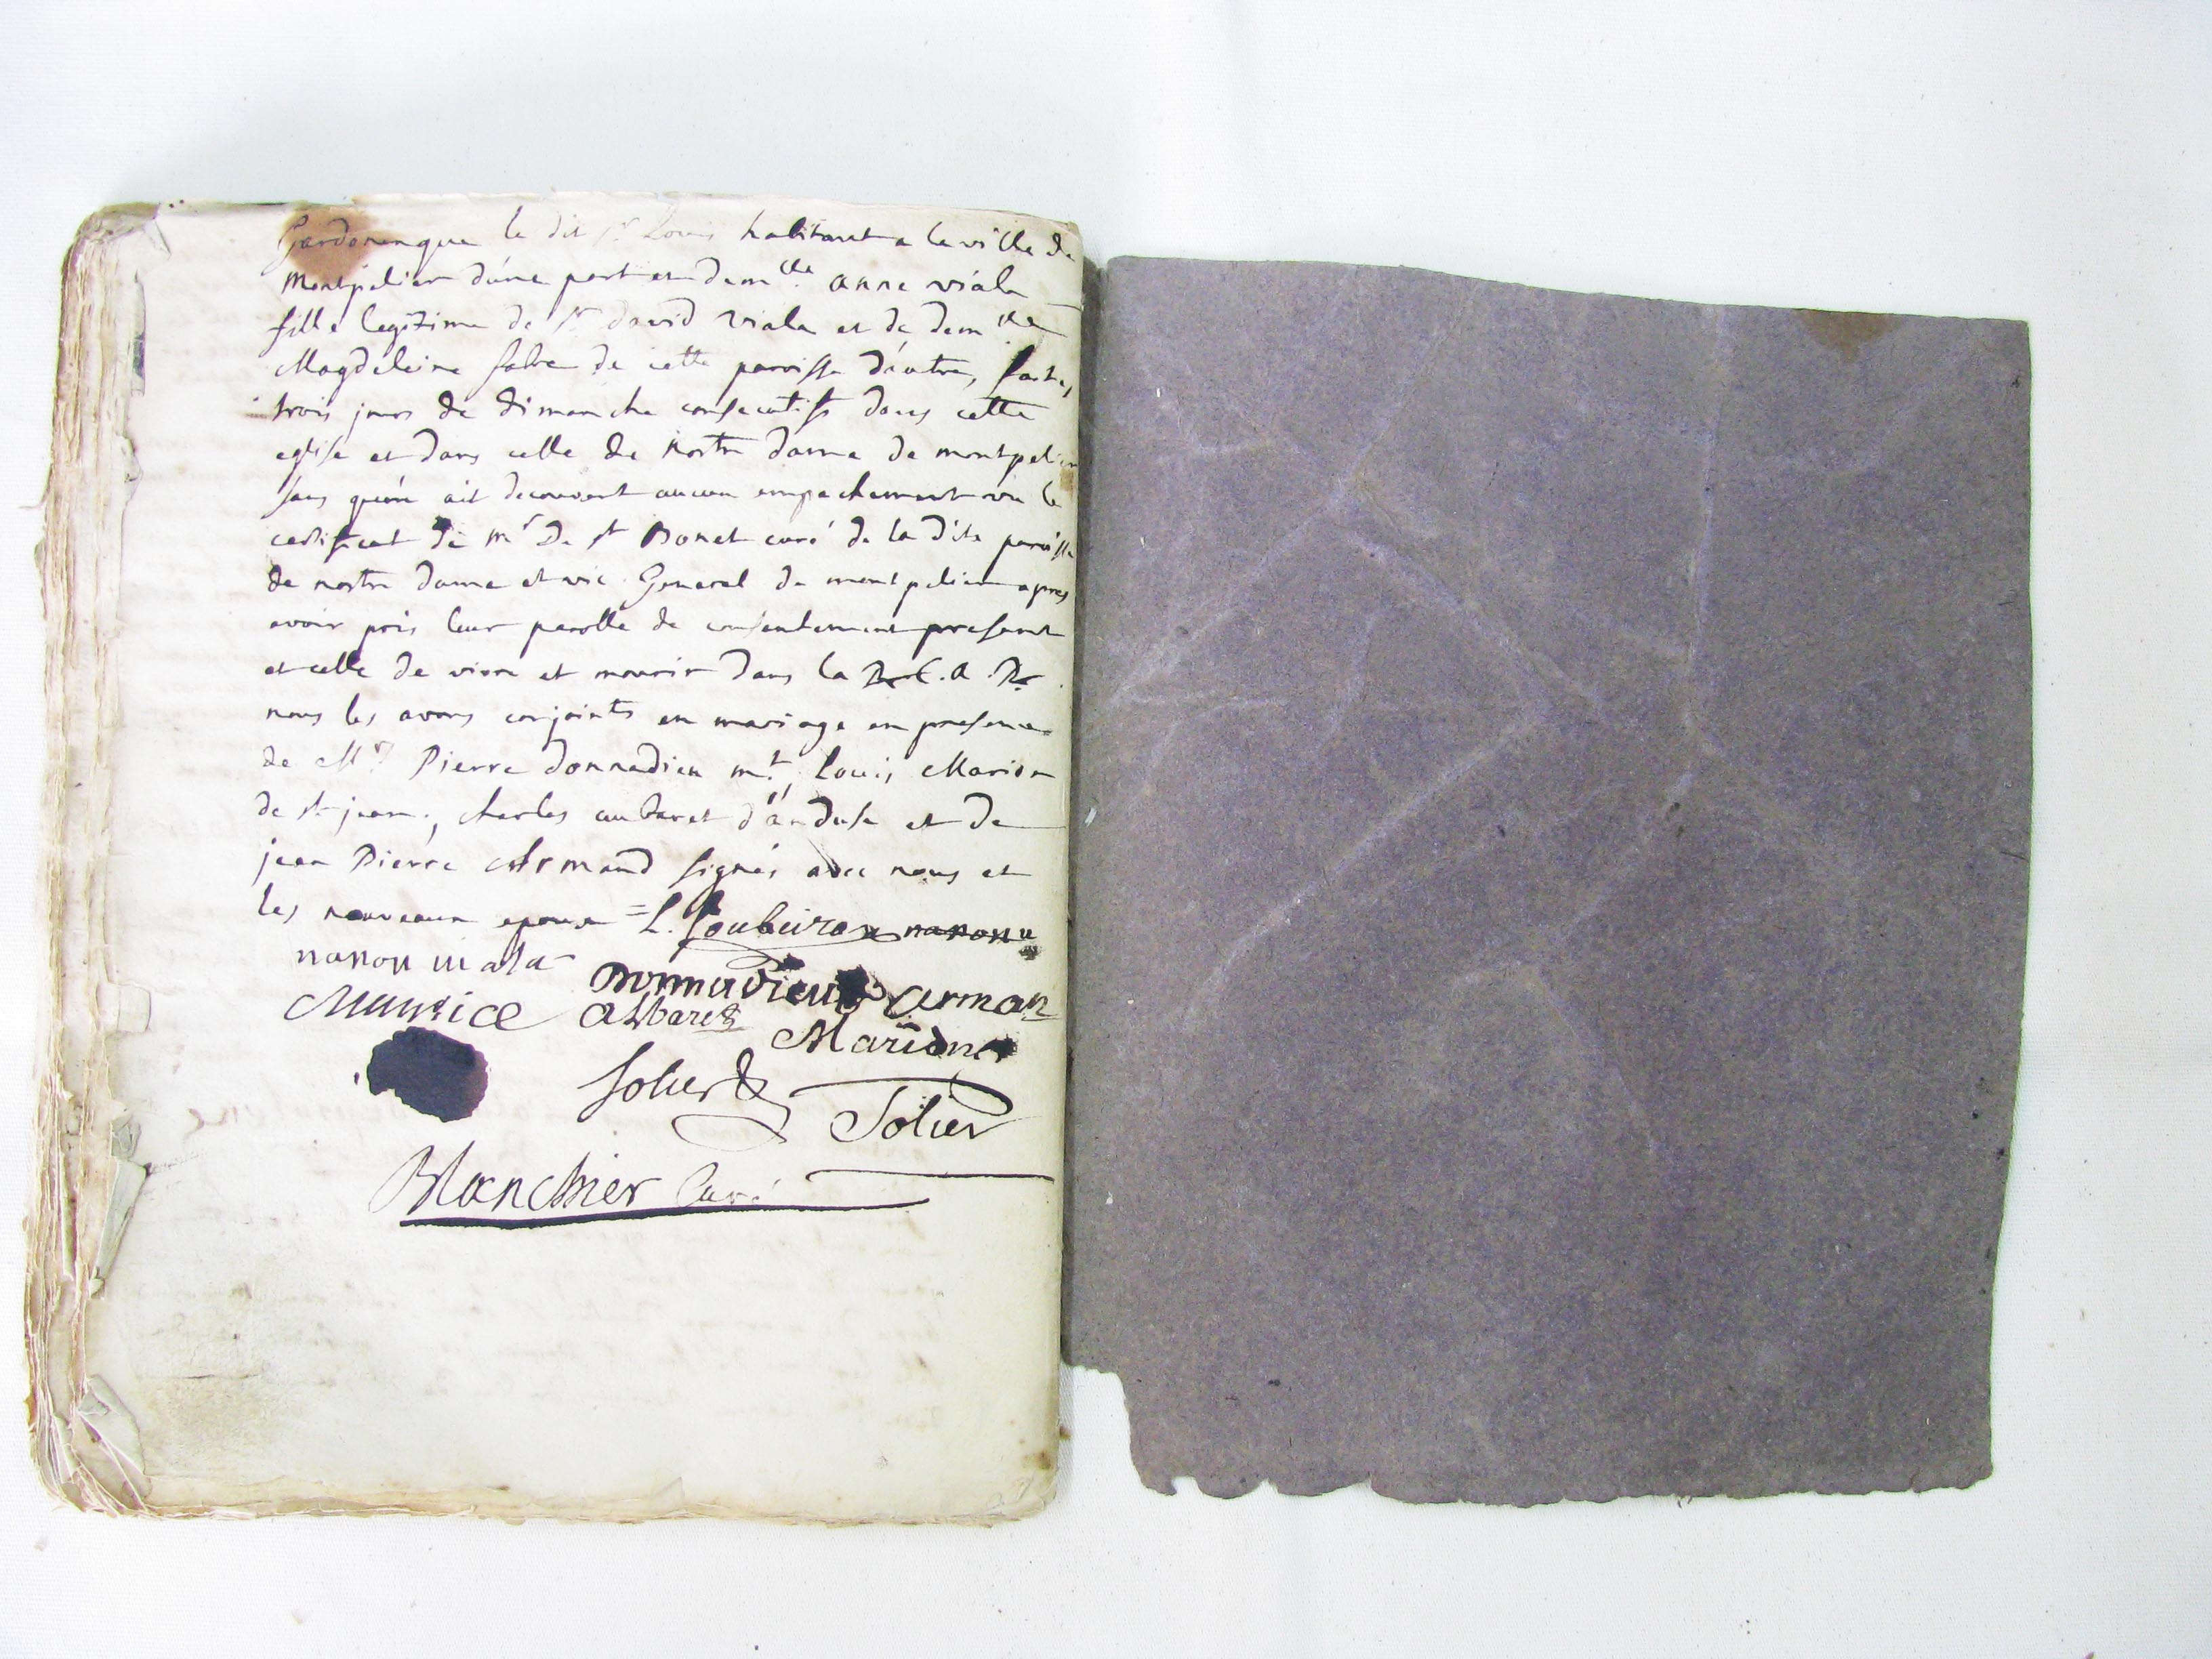 Gardonenque le dit sr Louis habitant a la ville de
montpelier d'une part et demlle anne viala
fille legitime de sr david viala et de demlle
Magdeleine fabre de cette paroisse d'autre, faites
trois jours de dimanche consecutifs dans cette
eglise et dans celle de nostre dame de montpelier
sans qu'on ait decouvert aucun empechement vu le
certificat de mr De st Bonet curé de la dite paroisse
de nostre dame et vic. General de montpelier apres
avoir pris leur parolle de consentement present
et celle de vivre et mourir dans la R.C.A.R.
nous les avons conjoints en mariage en presence
de Mrs Pierre donnadieu mt, Louis Marion
de st jean, charles aubaret d'anduse et de
jean Pierre Armand signés avec nous et
les nouveaux epoux = L. Soubeiran nanon
nanon viala
Donnadieu arman
Maurice albaret
Marion
Solier
Solier
Blanchier Curé